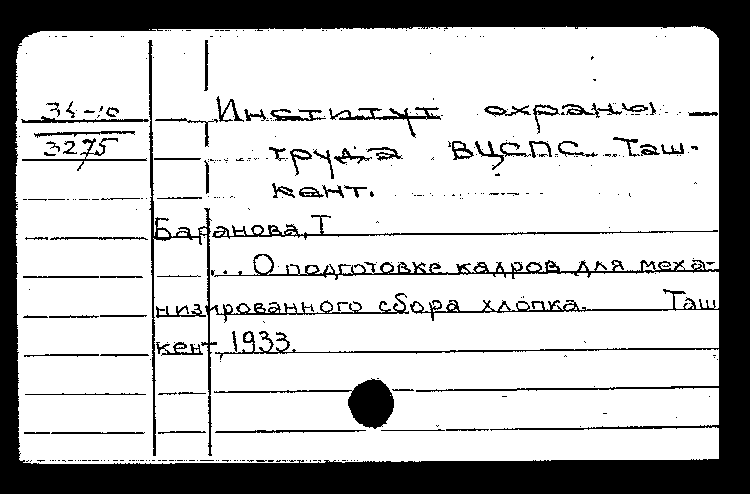 34-10
3275
Институт охраны
труда ВЦСПС. Таш-
кент.
Баранова, Т
... О подготовке кадров для меха-
низированного сбора хлопка. Таш
кент, 1933.